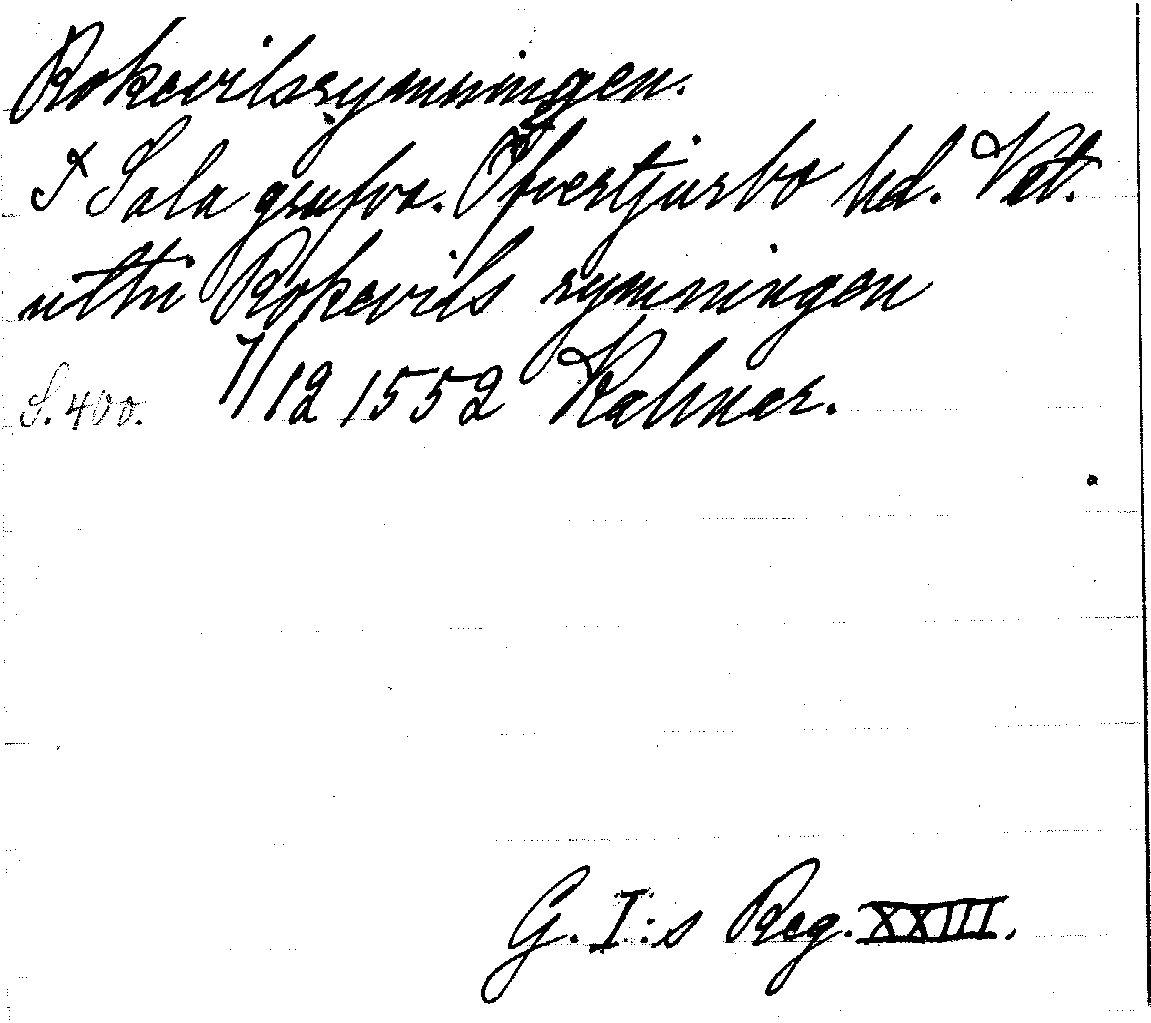 Rokevilsrymningen.
I Sala grufva. Öfvertjurbo hd. Vstl.
utthi Rokevils rymningen
S. 400. 7/12 1552 Kalmar.
G. I:s Reg. XXIII.